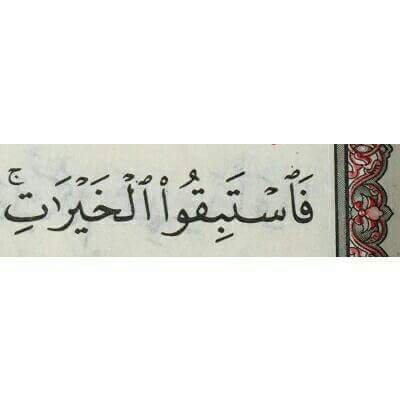 فَٱسْتَبِقُوا۟ ٱلْخَيْرَٰتِ ۚ